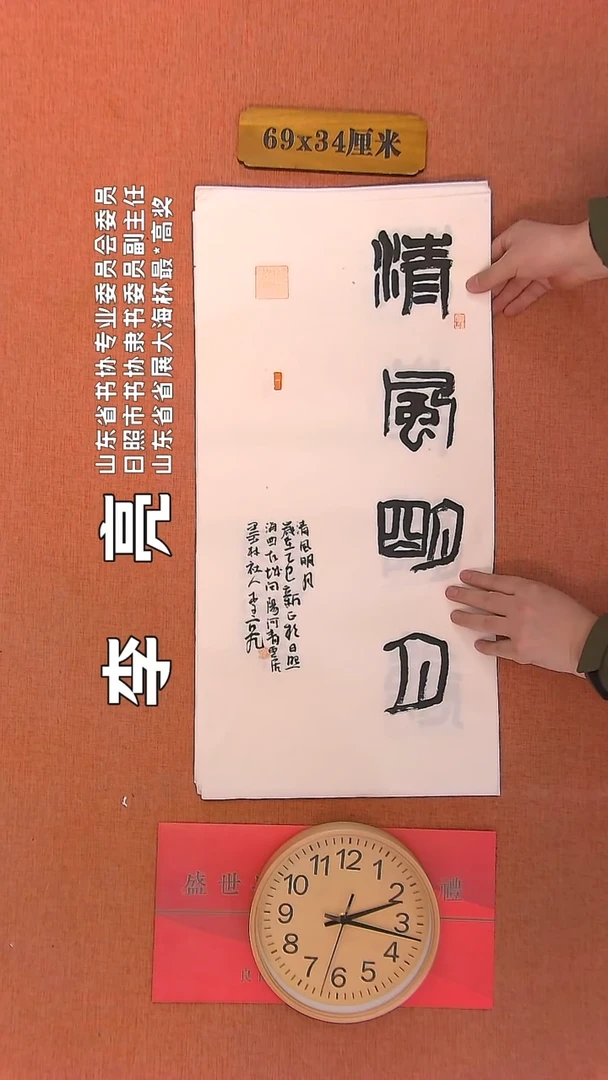 69x34厘米
山东省书协专业委员会委员
日照市书协隶书委员副主任
山东省省展大海杯最*高奖
李 亮
清
風
明
月
清风明月
岁在乙巳新正於日照
盛 世
禮
12
1
2
3
4
5
6
7
8
9
10
11